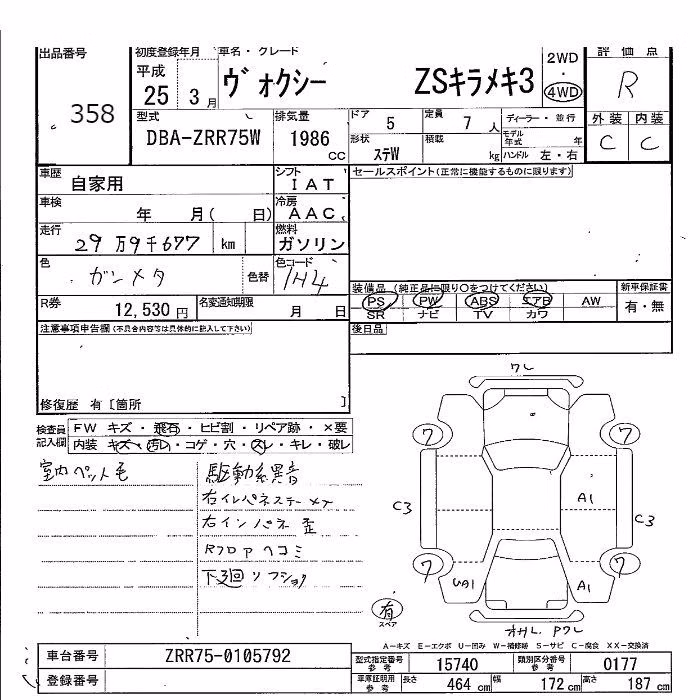 出品番号 358
初度登録年月 平成 25 3 月
車名・グレード ヴォクシー ZSキラメキ3
2WD ・ 4WD
評価点 R
型式 DBA-ZRR75W
排気量 1986 CC
ドア 5
定員 7 人
ディーラー・並行
形状 ステW
積載 kg
モデル年式 年
ハンドル 左・右
外装 内装
C C
車歴 自家用
シフト IAT
セールスポイント(正常に機能するものに限ります)
車検 年 月( 日)
冷房 AAC
走行 29万9千677 km
燃料 ガソリン
色 ガンメタ 色替
色コード 1H4
装備品 (純正品に限り○をつけてください)
新車保証書
PS PW ABS エアB AW
有・無
SR ナビ TV カワ
R券 12,530 円
名変通知期限 月 日
後日品
注意事項申告欄(不具合内容等は具体的に記入して下さい)
修復歴 有 [箇所 ]
検査員記入欄
FW キズ・飛石・ヒビ割・リペア跡・×要
内装 キズ・汚レ・コゲ・穴・スレ・キレ・破レ
室内ペット毛
駆動系異音
右インパネ歪
Rフロアヘコミ
ワレ
7 7
C3 A1 C3
7 7
UA1 A1
有 スペア
A-キズ E-エクボ U-凹み W-補修跡 S-サビ C-腐食 XX-交換済
車台番号 ZRR75-0105792
登録番号
型式指定番号 参考 15740
類別区分番号 参考 0177
車庫証明用 参考 長さ 464 cm 幅 172 cm 高さ 187 cm